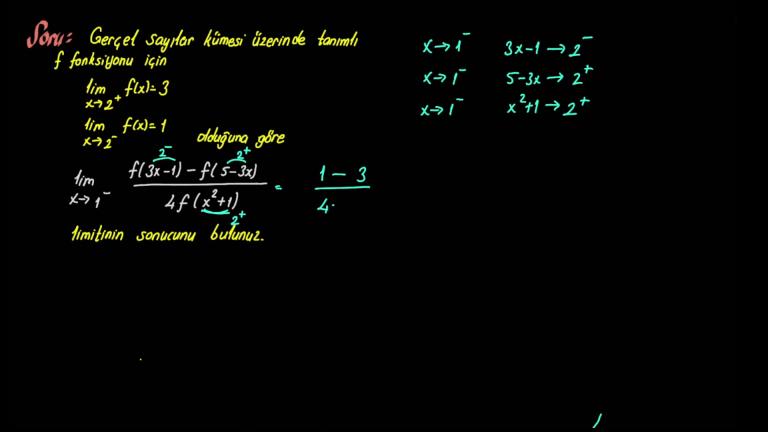 Soru:- Gerçel sayılar kümesi üzerinde tanımlı
f fonksiyonu için
lim x→2⁺ f(x)=3
lim x→2⁻ f(x)=1 olduğuna göre
2⁻ 2⁺
lim x→1⁻ f(3x-1) - f(5-3x) / 4f(x²+1) = 1 - 3 / 4.
2⁺
limitinin sonucunu bulunuz.
x→1⁻ 3x-1→2⁻
x→1⁻ 5-3x→2⁺
x→1⁻ x²+1→2⁺